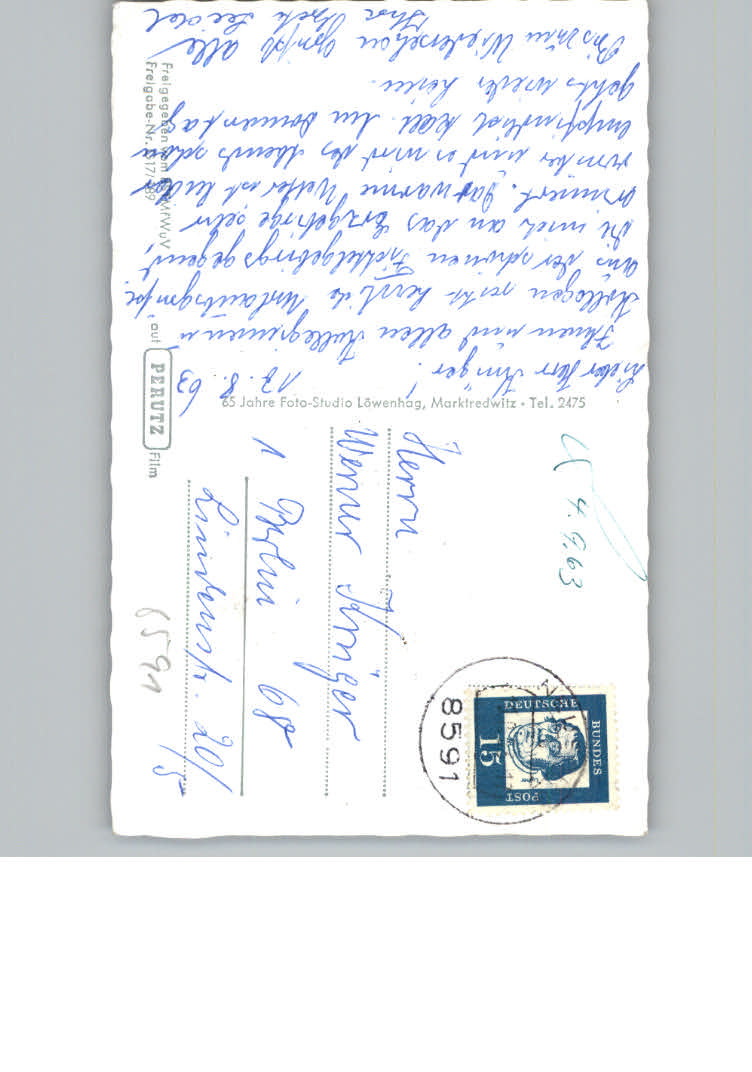 17. 8. 63
Lieber Herr Krüger!
Ihnen und allen Kolleginnen u.
Kollegen recht herzliche Urlaubsgrüße
aus der schönen Fichtelgebirgsgegend,
die mich an das Erzgebirge sehr
erinnert. Das warme Wetter ist leider
vorüber und es wird des Abends schon
empfindlich kalt. Am Donnerstag
geht's wieder heim.
Bis zum Wiedersehen grüßt alle
Ihre Seidel
65 Jahre Foto-Studio Löwenhag, Marktredwitz · Tel. 2475
Freigegeben vom MfWuV
Freigabe-Nr.
auf PERUTZ Film
4. 9. 63
Herrn
Werner Krüger
1 Berlin 68
Lindenstr. 20/5
8591
DEUTSCHE
BUNDES
POST
15
8591